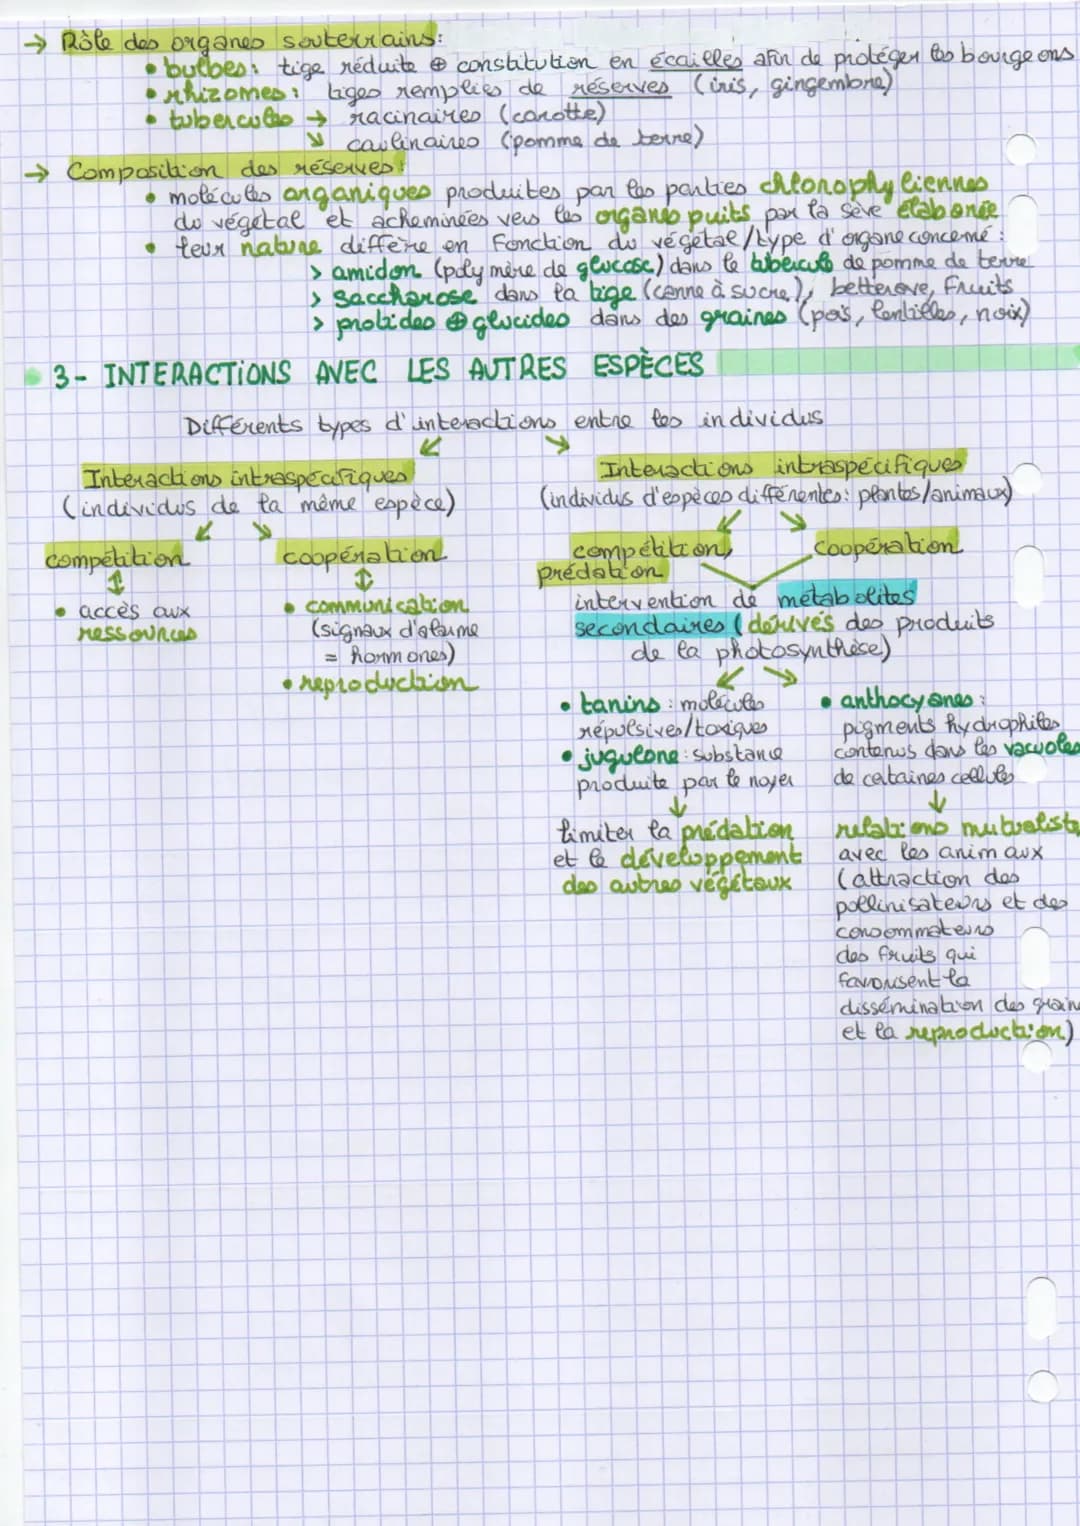 → Rôle des organes souterrains:
• bulbes: tige réduite ⊕ constitution en écailles afin de protéger les bourgeons
• rhizomes: tiges remplies de réserves (iris, gingembre)
• tubercules → racinaires (carotte)
↘ caulinaires (pomme de terre)
→ Composition des réserves:
• molécules organiques produites par les parties chlorophylliennes
du végétal et acheminées vers les organes puits par la sève élaborée
• leur nature diffère en fonction du végétal/type d'organe concerné:
> amidon (polymère de glucose) dans le tubercule de pomme de terre
> saccharose dans la tige (canne à sucre), betterave, fruits
> protides ⊕ glucides dans des graines (pois, lentilles, noix)
3- INTERACTIONS AVEC LES AUTRES ESPÈCES
Différents types d'interactions entre les individus
↙ ↘
Interactions intraspécifiques
(individus de la même espèce)
↙ ↘
compétition
↕
• accès aux
ressources
coopération
↕
• communication
(signaux d'alarme
= hormones)
• reproduction
Interactions intraspécifiques
(individus d'espèces différentes: plantes/animaux)
↙ ↘
compétition,
prédation
coopération
intervention de métabolites
secondaires (dérivés des produits
de la photosynthèse)
↙ ↘
• tanins: molécules
répulsives/toxiques
• jugulone: substance
produite par le noyer
↓
limiter la prédation
et le développement
des autres végétaux
• anthocyanes:
pigments hydrophiles
contenus dans les vacuoles
de certaines cellules
↓
relations mutualiste
avec les animaux
(attraction des
pollinisateurs et des
consommateurs
des fruits qui
favorisent la
dissémination des graine
et la reproduction)